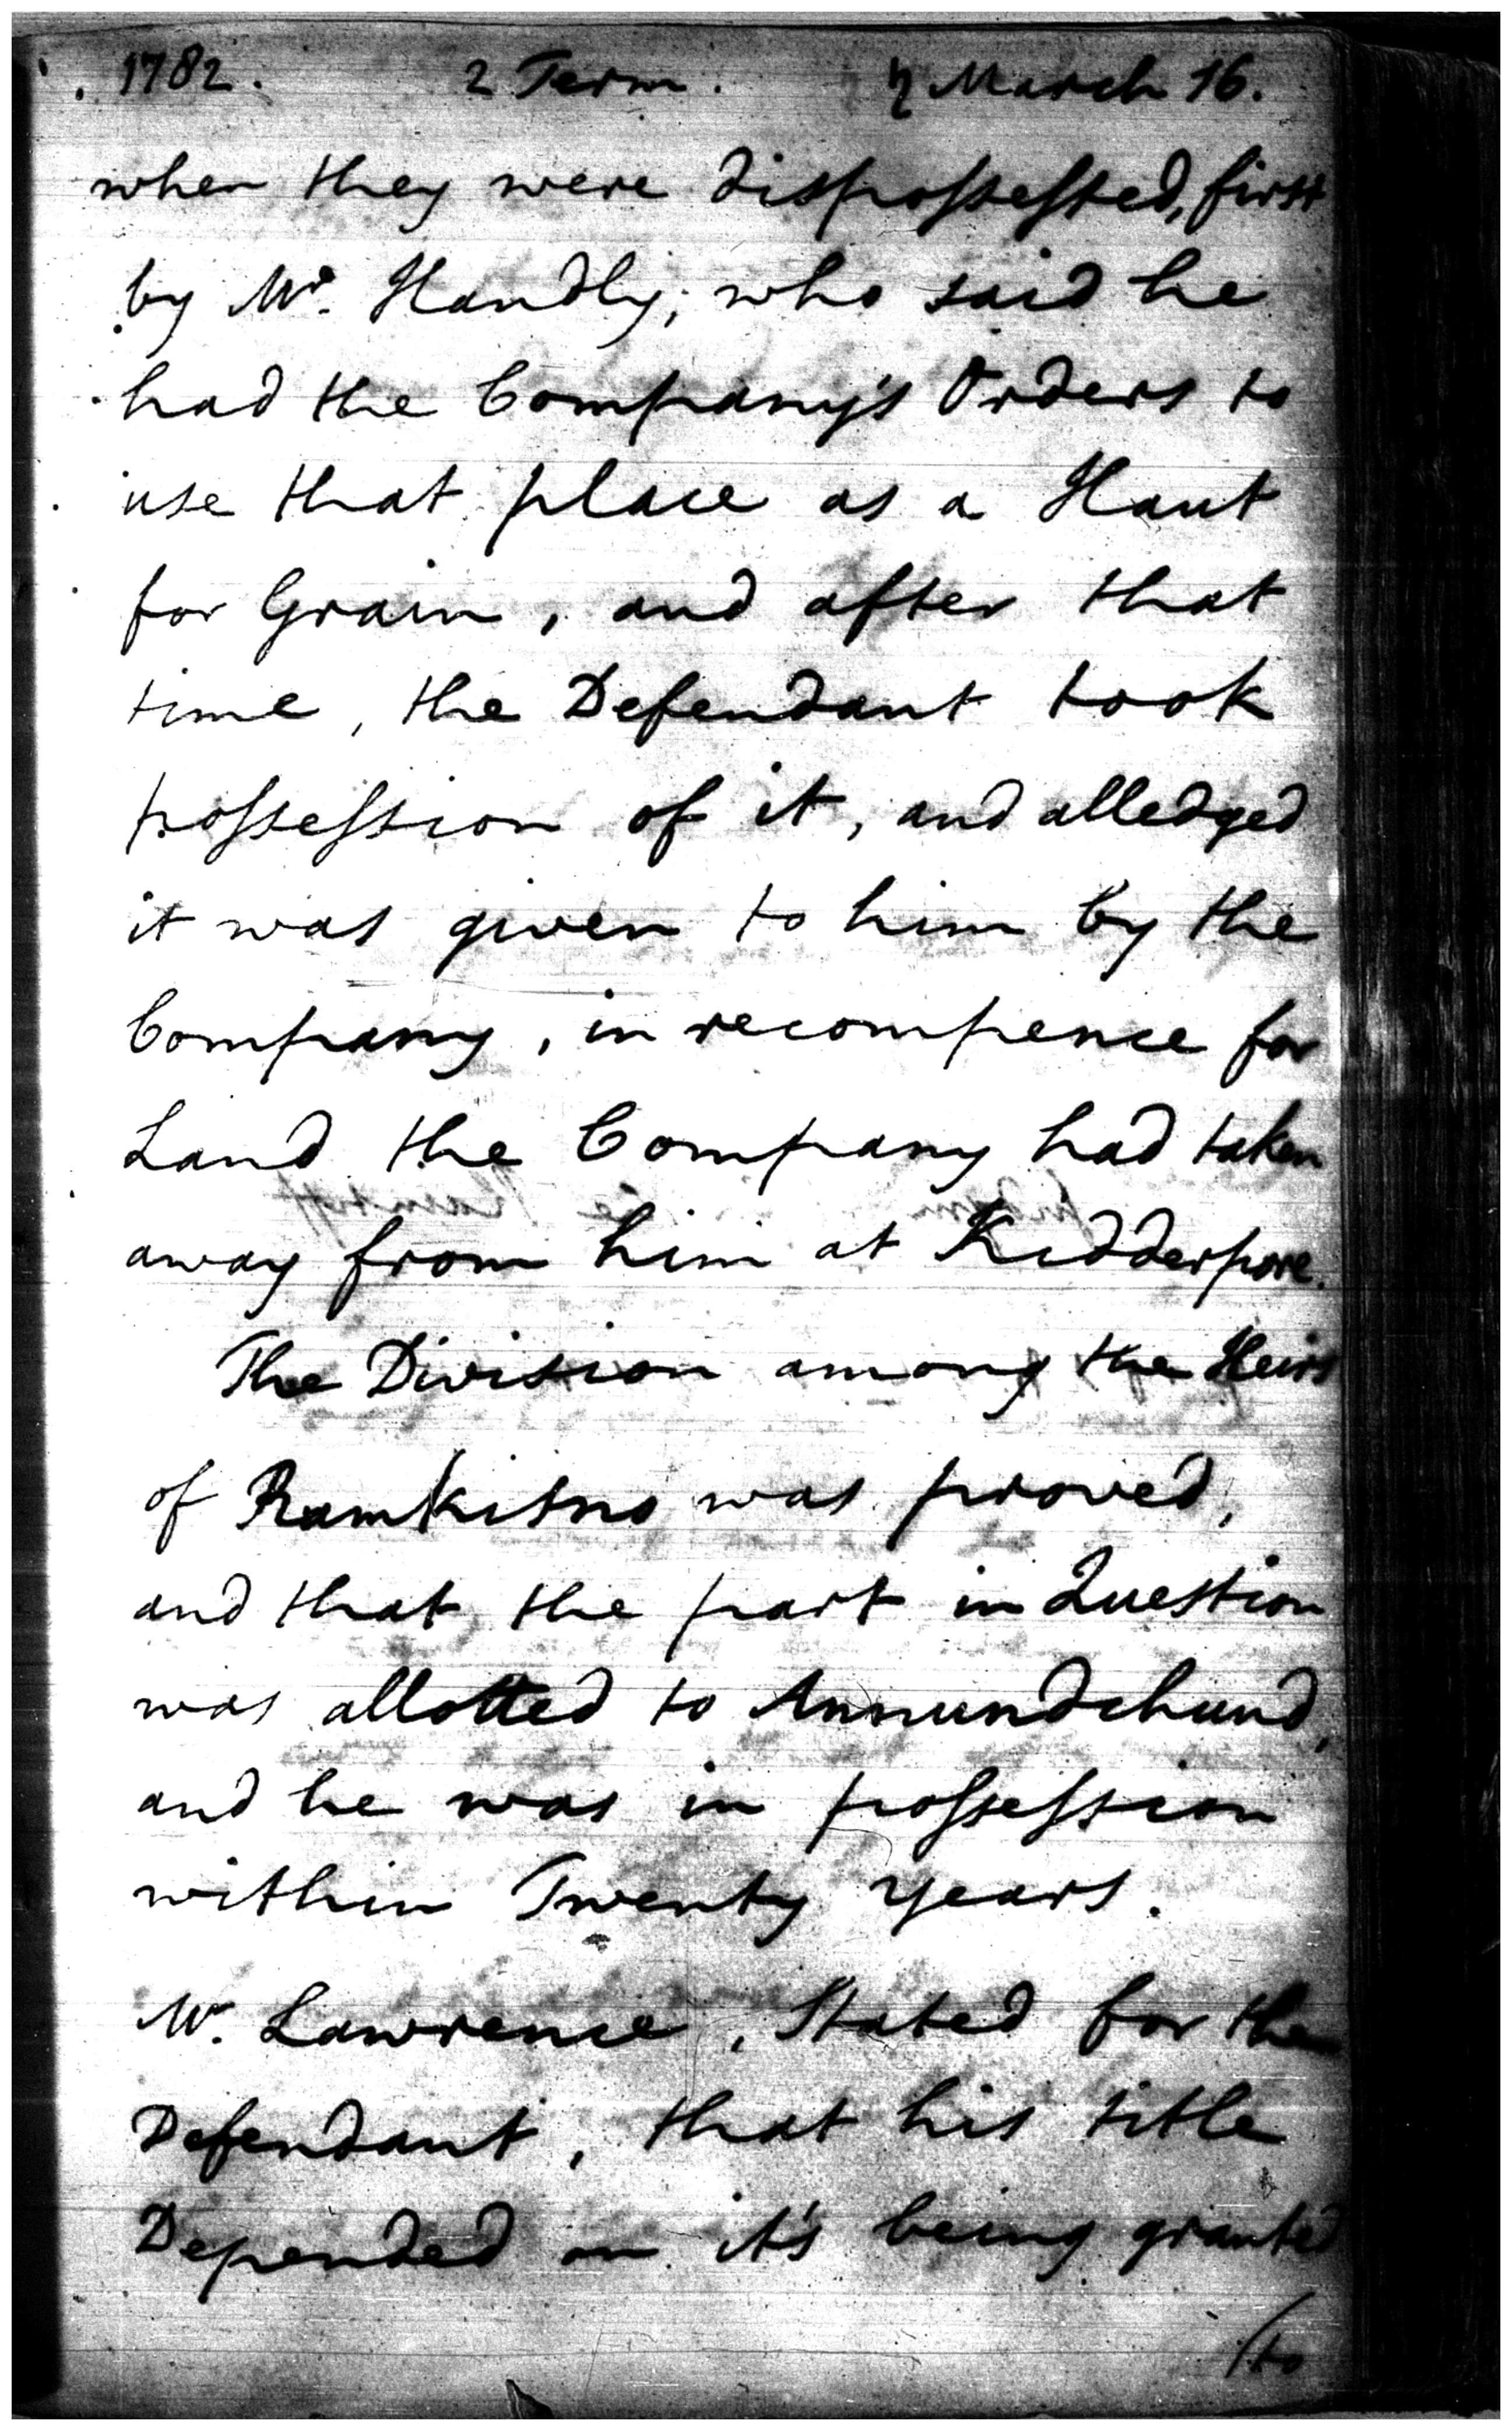 1782. 2 Term. ♄ March 16.
when they were dispossessed, first
by Mr. Handly; who said he
had the Company's Orders to
use that place as a Haut
for Grain, and after that
time, the Defendant took
possession of it, and alledged
it was given to him by the
Company, in recompence for
Land the Company had taken
away from him at Kidderpore.
The Division among the Heirs
of Ramkisno was proved,
and that the part in Question
was allotted to Annundchund,
and he was in possession
within Twenty years.
Mr. Lawrence, Stated for the
Defendant, that his title
Depended on it's being granted
(to